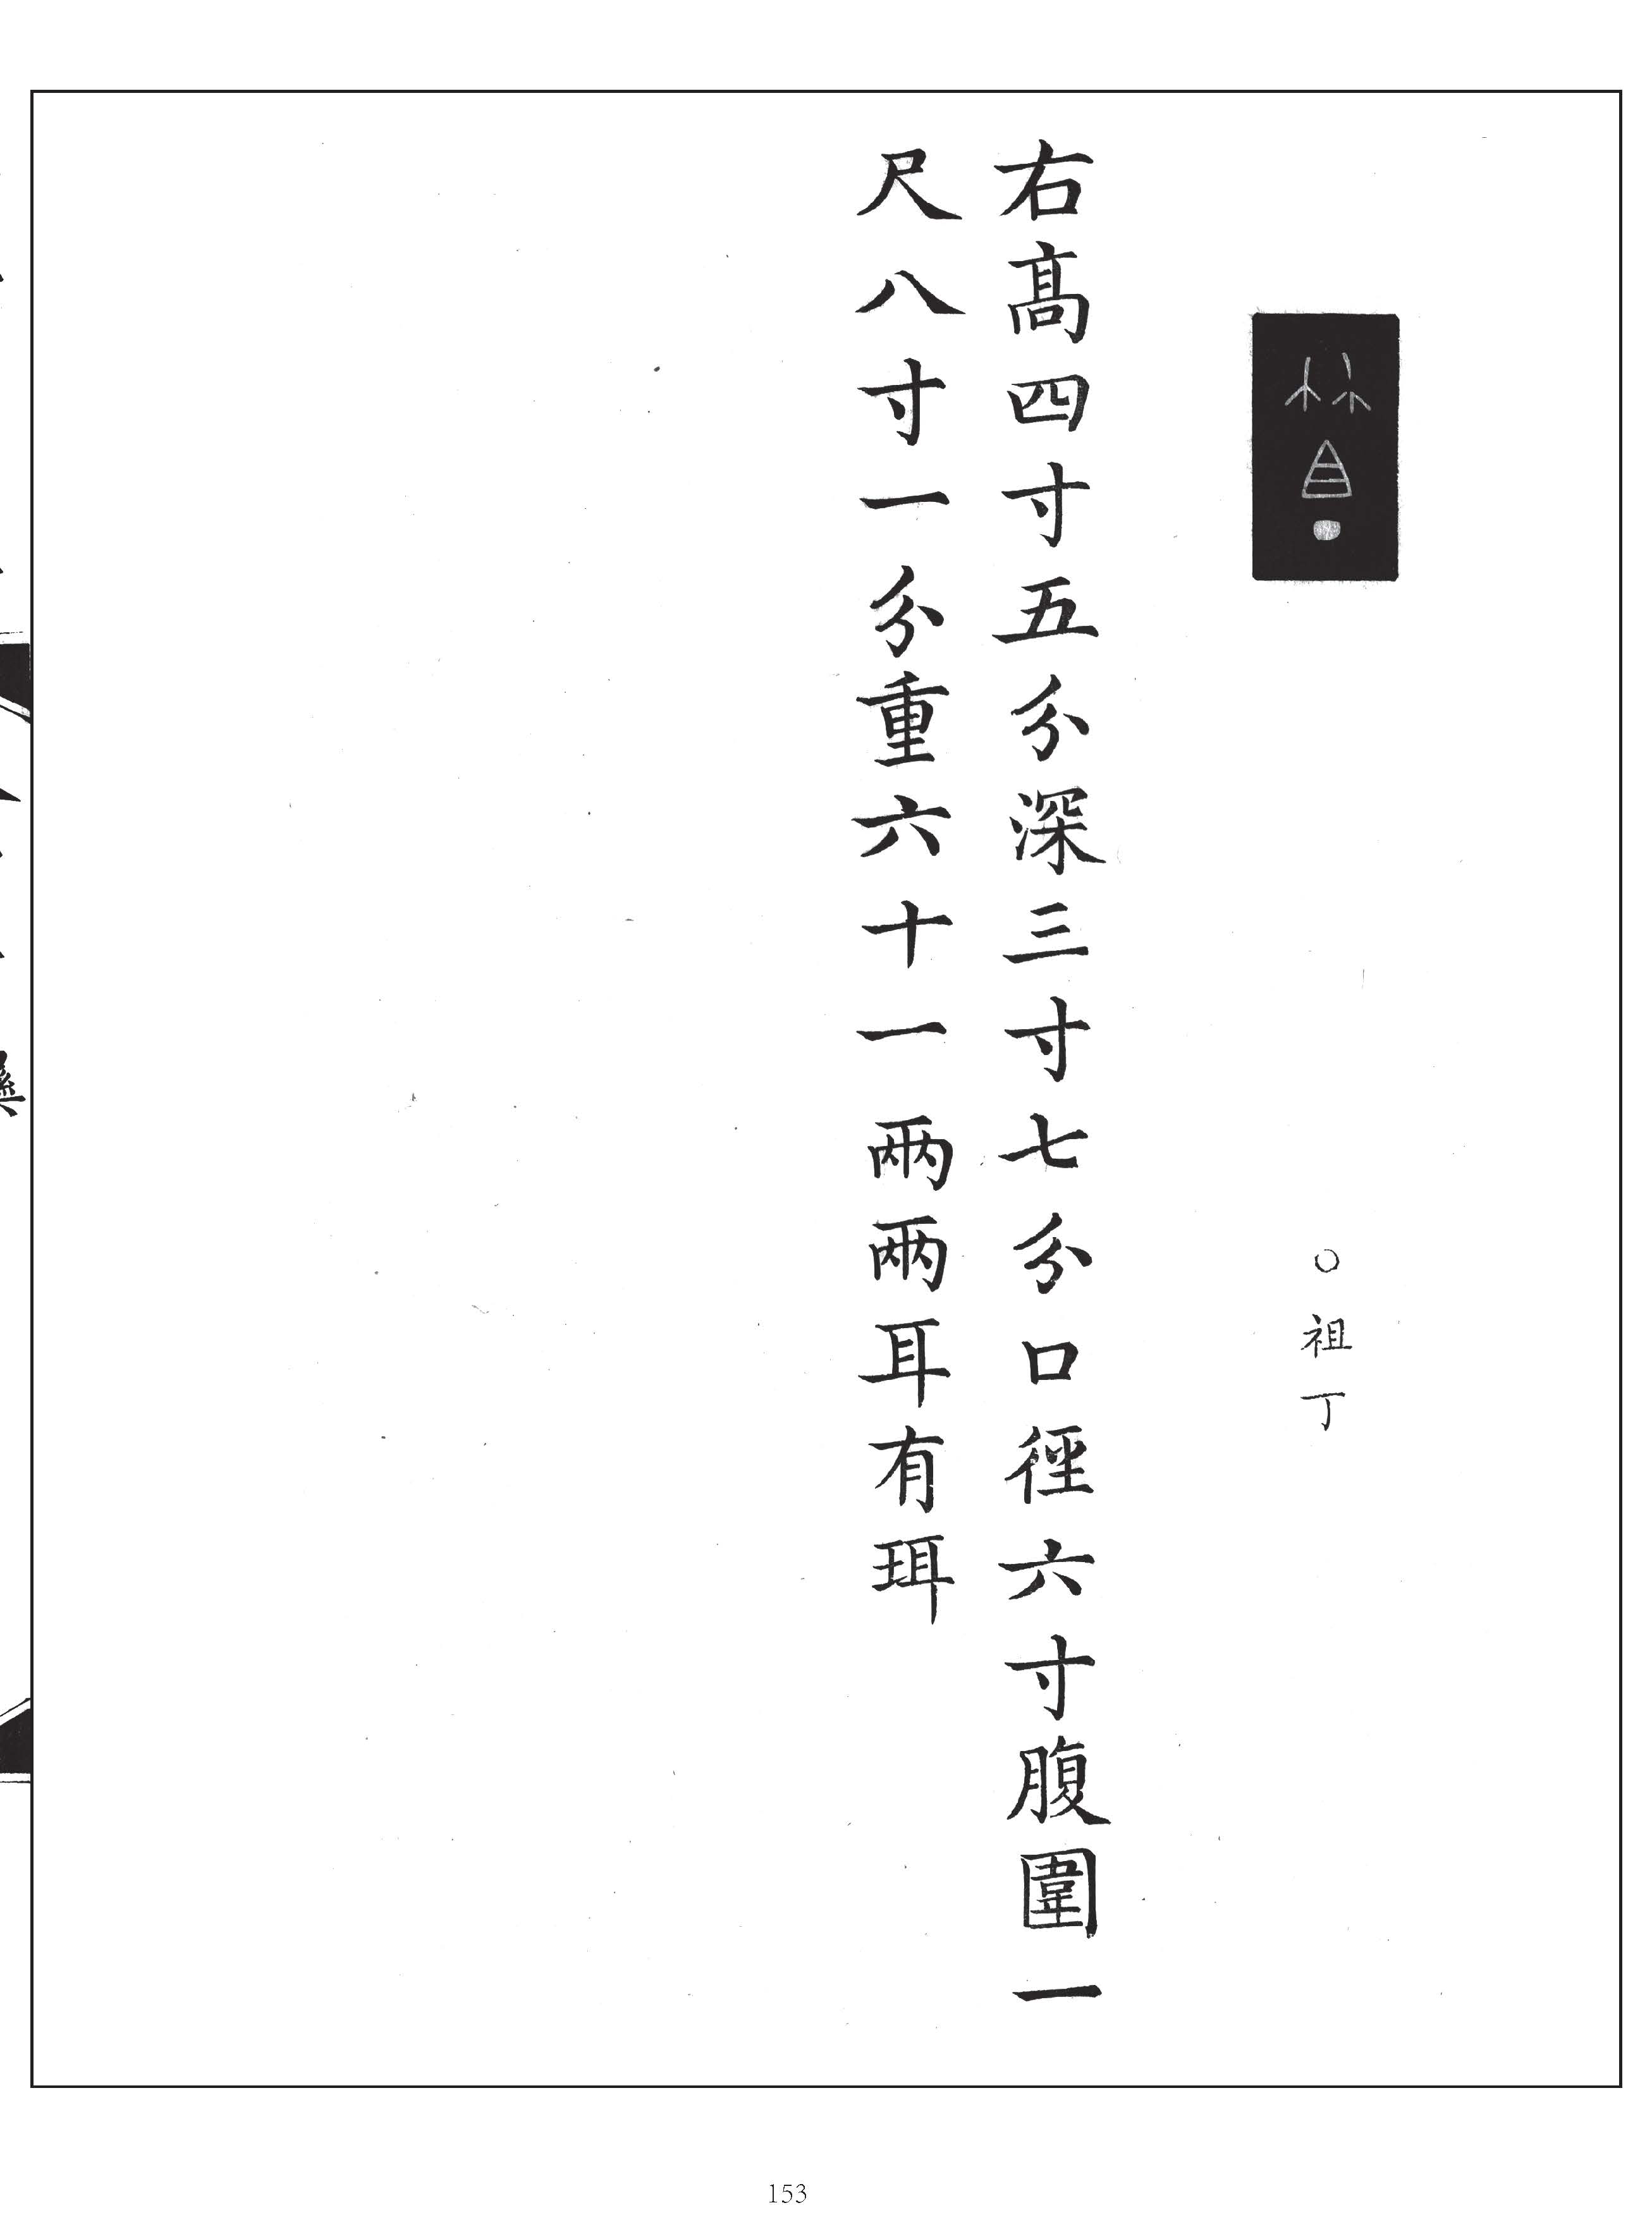 ○祖丁
右高四寸五分深三寸七分口徑六寸腹圍一
尺八寸一分重六十一兩兩耳有珥
彝
153